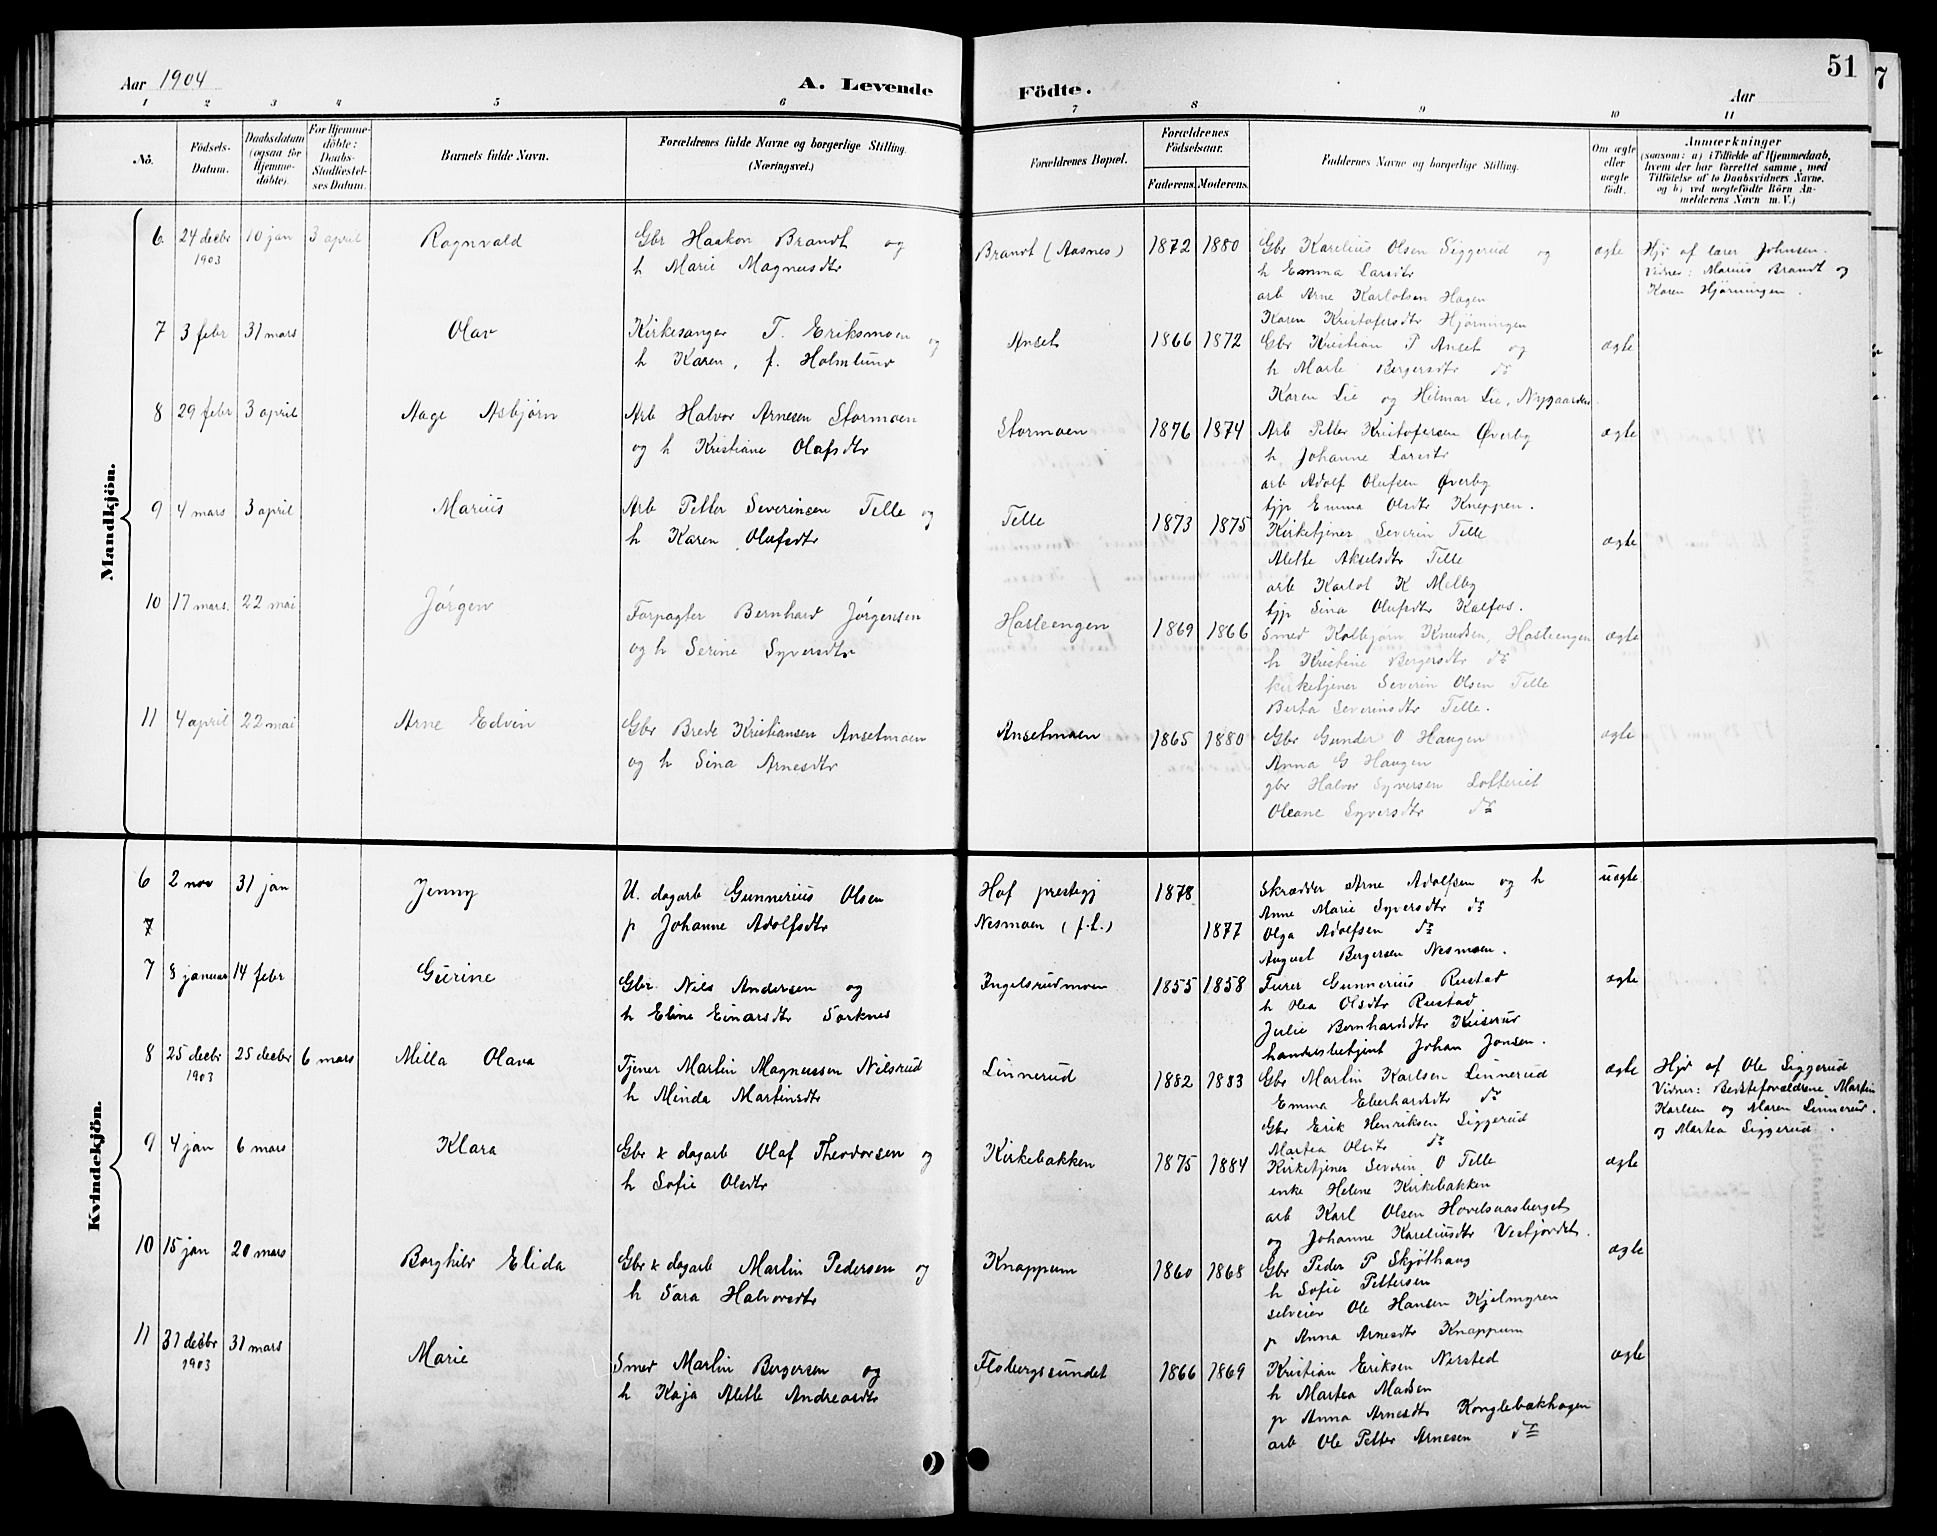 Aar 1904
A. Levende
Födte.
Aar
51
1 2 3 4 5 6 7 8 9 10 11
No.
Födsels-
Datum.
Daabsdatum
(ogsaa for
Hjemme-
döbte).
For Hjemme-
döbte:
Daabs-
Stadfæstel-
ses Datum.
Barnets fulde Navn.
Forældrenes fulde Navne og borgerlige Stilling.
(Næringsvei.)
Forældrenes Bopæl.
Forældrenes
Födselsaar.
Faderens. Moderens.
Faddernes Navne og borgerlige Stilling.
Om ægte
eller
uægte
födt.
Anmærkninger
(saasom: a) i Tilfælde af Hjemmedaab,
hvem der har forrettet samme, med
Tilföielse af to Daabsvidners Navne.
og b) ved uægtefödte Börn An-
melderens Navn m. V.)
Mandkjön.
6. 24 decbr 10 jan 3 april Ragnvald
1903
Gbr Haakon Brandt og
h Marie Magnusdtr
Brandt (Aasnes) 1872 1880
Gbr Karelius Olsen Siggerud og
h Emma Larsdtr
arb Arne Karlotsen Hagen
Karen Kristofersdtr Hjørningen
ægte
Hjd af lærer Johnsen.
Vidner: Marius Brandt og
Karen Hjørningen.
7 3 febr 31 mars Olav
Kirkesanger T. Eriksmoen og
h Karen, f. Holmlund
Anset 1866 1872
Gbr Kristian P Anset og
h Marte Bergersdtr ds
Karen Lie og Hilmar Lie, Nygaarden.
ægte
8 29 febr 3 april Aage Asbjørn
Arb Halvor Arnesen Stormoen
og h Kristiane Olafsdtr
Stormoen 1876 1874
Arb Petter Kristofersen Øverby
h Johanne Larsdtr
arb Adolf Olufsen Øverby
tjp Emma Olsdtr Kneppen.
ægte
9 4 mars 3 april Marius
Arb Petter Severinsen Telle og
h Karen Olufsdtr
Telle 1873 1875
Kirketjener Severin Telle
Alette Akselsdtr Telle
arb Karlot K Melby
tjp Sina Olufsdtr Kalfos.
ægte
10 17 mars. 22 mai Jørgen
Forpagter Bernhard Jørgensen
og h Serine Syversdtr
Hasleengen 1869 1866
Smed Kolbjørn Knudsen, Hasleengen
h Kristine Bergersdtr ds
kirketjener Severin Olsen Telle
Berta Severinsdtr Telle.
ægte
11 4 april 22 mai Arne Edvin
Gbr Brede Kristiansen Ansetmoen
og h Sina Arnesdtr
Ansetmoen 1865 1880
Gbr Gunder O Haugen
Anna G Haugen
gbr Halvor Syversen Lofteriet
Oleane Syversdtr ds
ægte
Kvindekjön.
6 2 nov 31 jan Jenny
7
U. dagarb Gunnerius Olsen
p Johanne Adolfsdtr
Hof prestegj 1878
Nesmoen (f.h.) 1877
Skrædder Arne Adolfsen og h
Anne Marie Syversdtr ds
Olga Adolfsen ds
August Bergersen Nesmoen.
uægte
7 8 januar 14 febr Gurine
Gbr. Nils Andersen og
h Eline Einarsdtr Sorknes
Ingelsrudmoen 1855 1858
Furer Gunnerius Rustad
h Olea Olsdtr Rustad
Julie Bernhardsdtr Keiserud
handelsbetjent Johan Jonsen.
ægte
8 25 decbr 25 decbr 6 mars Milla Olava
1903
Tjener Martin Magnussen Nilsrud
h Minda Martinsdtr
Linnerud 1882 1883
Gbr Martin Karlsen Linnerud
Emma Eberhardsdtr ds
Gbr Erik Henriksen Siggerud
Martea Olsdtr ds
ægte
Hjd af Ole Siggerud
Vidner: Bedsteforældrene Martin
Karlsen og Maren Linnerud.
og Martea Siggerud.
9 4 jan 6 mars Klara
Gbr & dagarb Olaf Theodorsen og
h Sofie Olsdtr
Kirkebakken 1875 1884
Kirketjener Severin O Telle
enke Helene Kirkebakken
arb Karl Olsen Hovelsaasberget
og Johanne Kareliusdtr Vestjordet.
ægte
10 15 jan 20 mars Borghild Elida
Gbr & dagarb Martin Pedersen og
h Sara Halvorsdtr
Knappum 1860 1868
Gbr Peder P Skjøthaug
h Sofie Pettersen
selveier Ole Hansen Kjelmyren
p Anna Arnesdtr Knappum
ægte
11 31 decbr 31 mars Marie
1903
Smed Martin Bergersen og
h Kaja Alette Andreasdtr
Flobergsundet 1866 1869
Kristian Eriksen Nersted
h Martea Madsen
p Anna Arnesdtr Konglebækhagen
arb Ole Petter Arnesen ds
ægte